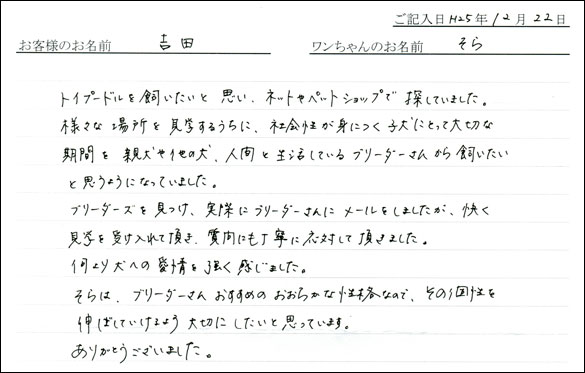 ご記入日 H25年12月22日
お客様のお名前 吉田 ワンちゃんのお名前 そら
トイプードルを飼いたいと思い、ネットやペットショップで探していました。
様々な場所を見学するうちに、社会性が身につく子犬にとって大切な
期間を親犬や他の犬、人間と生活しているブリーダーさんから飼いたい
と思うようになっていました。
ブリーダーズを見つけ、実際にブリーダーさんにメールをしましたが、快く
見学を受け入れて頂き、質問にも丁寧に応対して頂きました。
何より犬への愛情を強く感じました。
そらは、ブリーダーさんおすすめのおおらかな性格なので、その個性を
伸ばしていけるよう大切にしたいと思っています。
ありがとうございました。